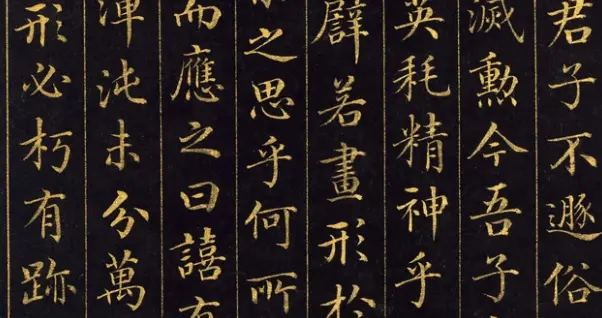 君子不遯俗
滅勳今吾子
英耗精神乎
若畫形於
之思乎何所
而應之曰譆有
渾沌未分萬
形必朽有跡